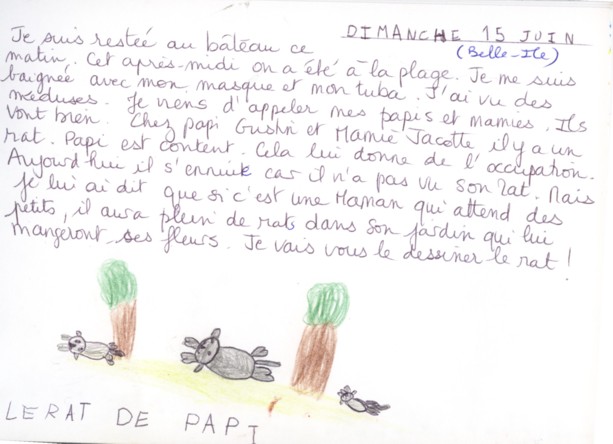 DIMANCHE 15 JUIN
(Belle-Ile)
Je suis restée au bâteau ce
matin. Cet après-midi on a été à la plage. Je me suis
baignée avec mon masque et mon tuba. J'ai vu des
méduses. Je viens d'appeler mes papis et mamies. Ils
vont bien. Chez papi Gustin et Mamie Jacotte il y a un
rat. Papi est content. Cela lui donne de l'occupation.
Aujourd'hui il s'ennuie car il n'a pas vu son rat. Mais
je lui ai dit que si c'est une Maman qui attend des
petits, il aura plein de rats dans son jardin qui lui
mangeront ses fleurs. Je vais vous le dessiner le rat !
LE RAT DE PAPI